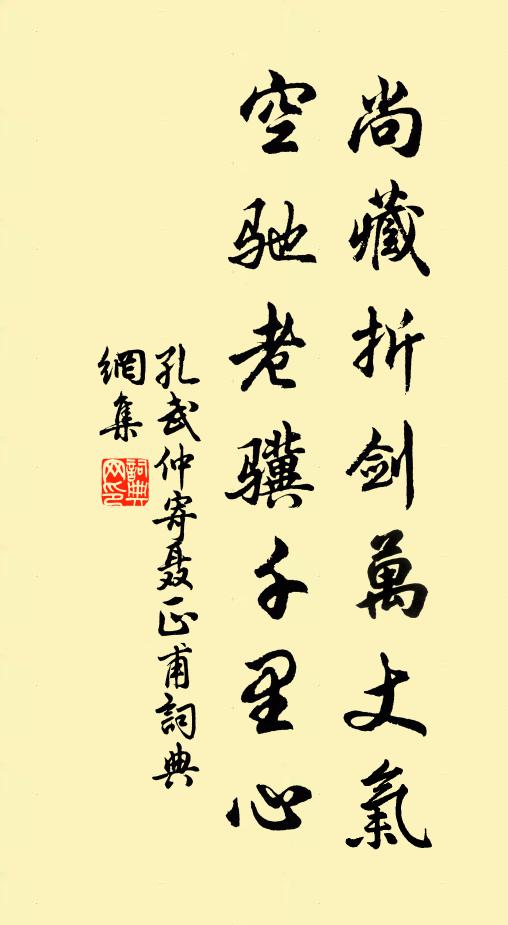 尚藏折劍萬丈氣
空馳老驥千里心
孔武仲寄聂正甫詞典
網集
詞典
网印